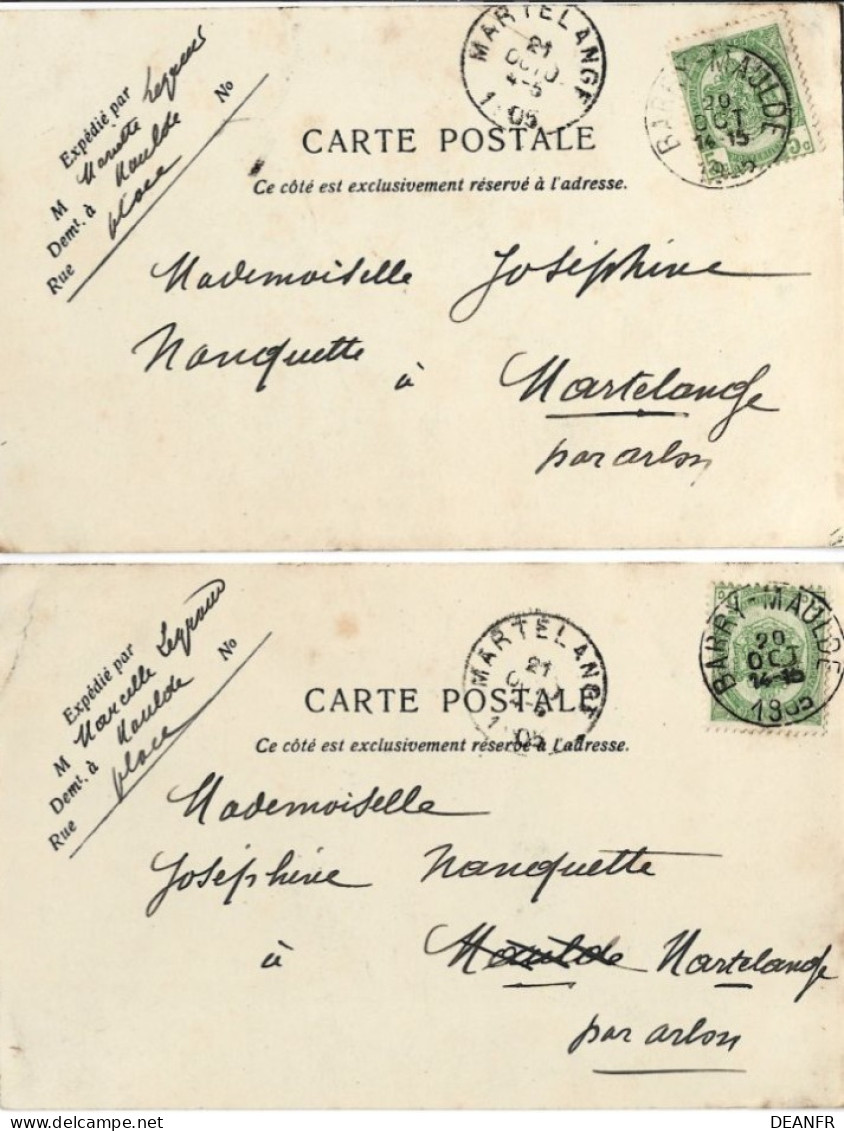 Expédié par
M Mariette Legrand
Demt. à Maulde
Rue place No
MARTELANGE
21
OCTO
4-5
1905
BARRY-MAULDE
20
OCT
14-15
1905
CARTE POSTALE
Ce côté est exclusivement réservé à l'adresse.
Mademoiselle Joséphine
Nanquette à Martelange
par arlon
Expédié par
M Marcelle Legrand
Demt. à Maulde
Rue place No
MARTELANGE
21
05
BARRY-MAULDE
20
OCT
14-15
1905
CARTE POSTALE
Ce côté est exclusivement réservé à l'adresse.
Mademoiselle
Joséphine Nanquette
à Maulde Martelange
par arlon
DEANFR